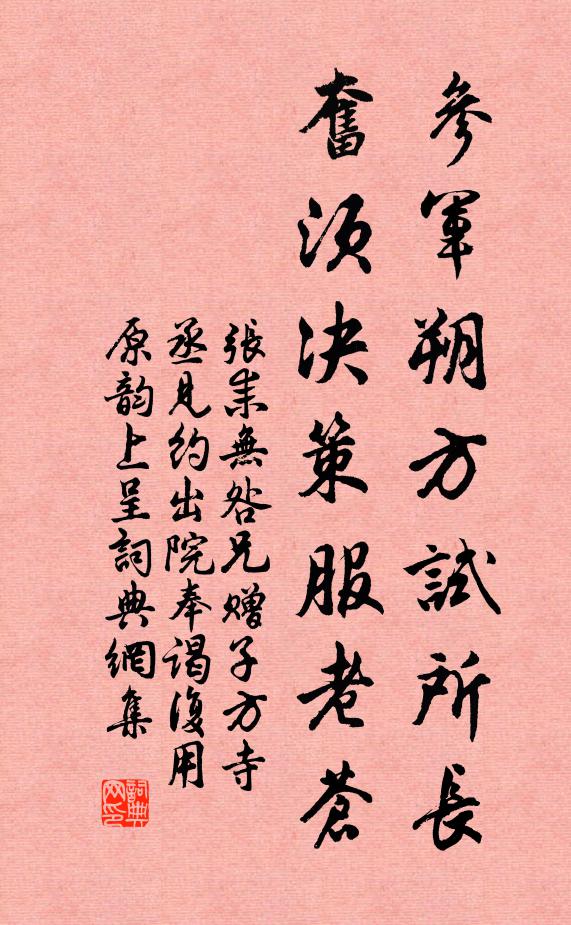 參軍朔方試所長
奮須決策服老蒼
張耒無咎兄贈子方寺
丞見約出院奉謁復用
原韵上呈詞典網集
詞典網印